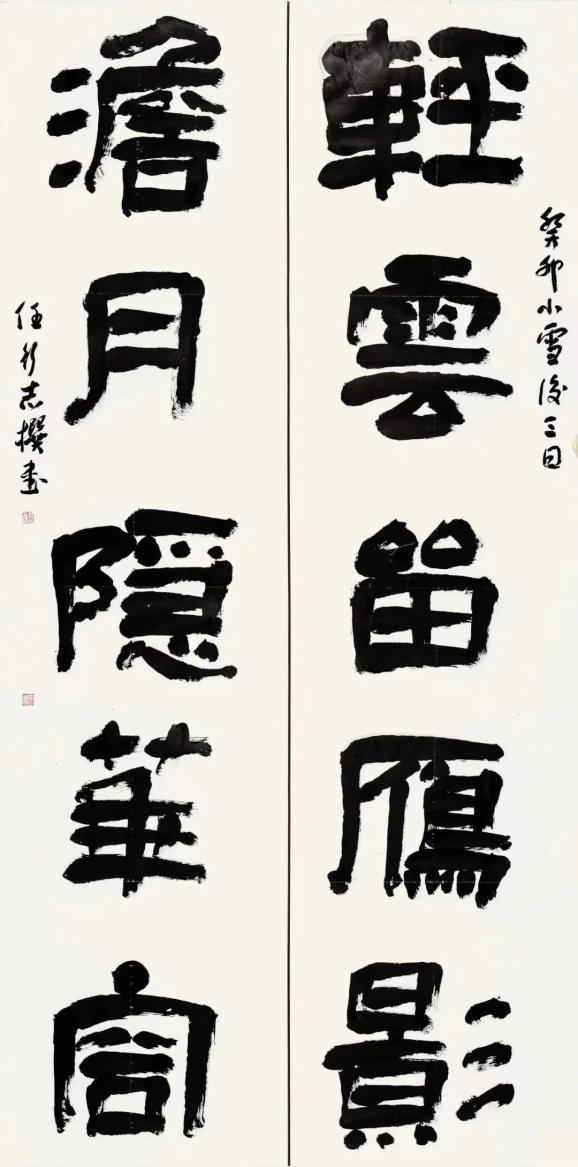 癸卯小雪後三日
輕雲留鴈影
澹月隱華容
任行志撰書